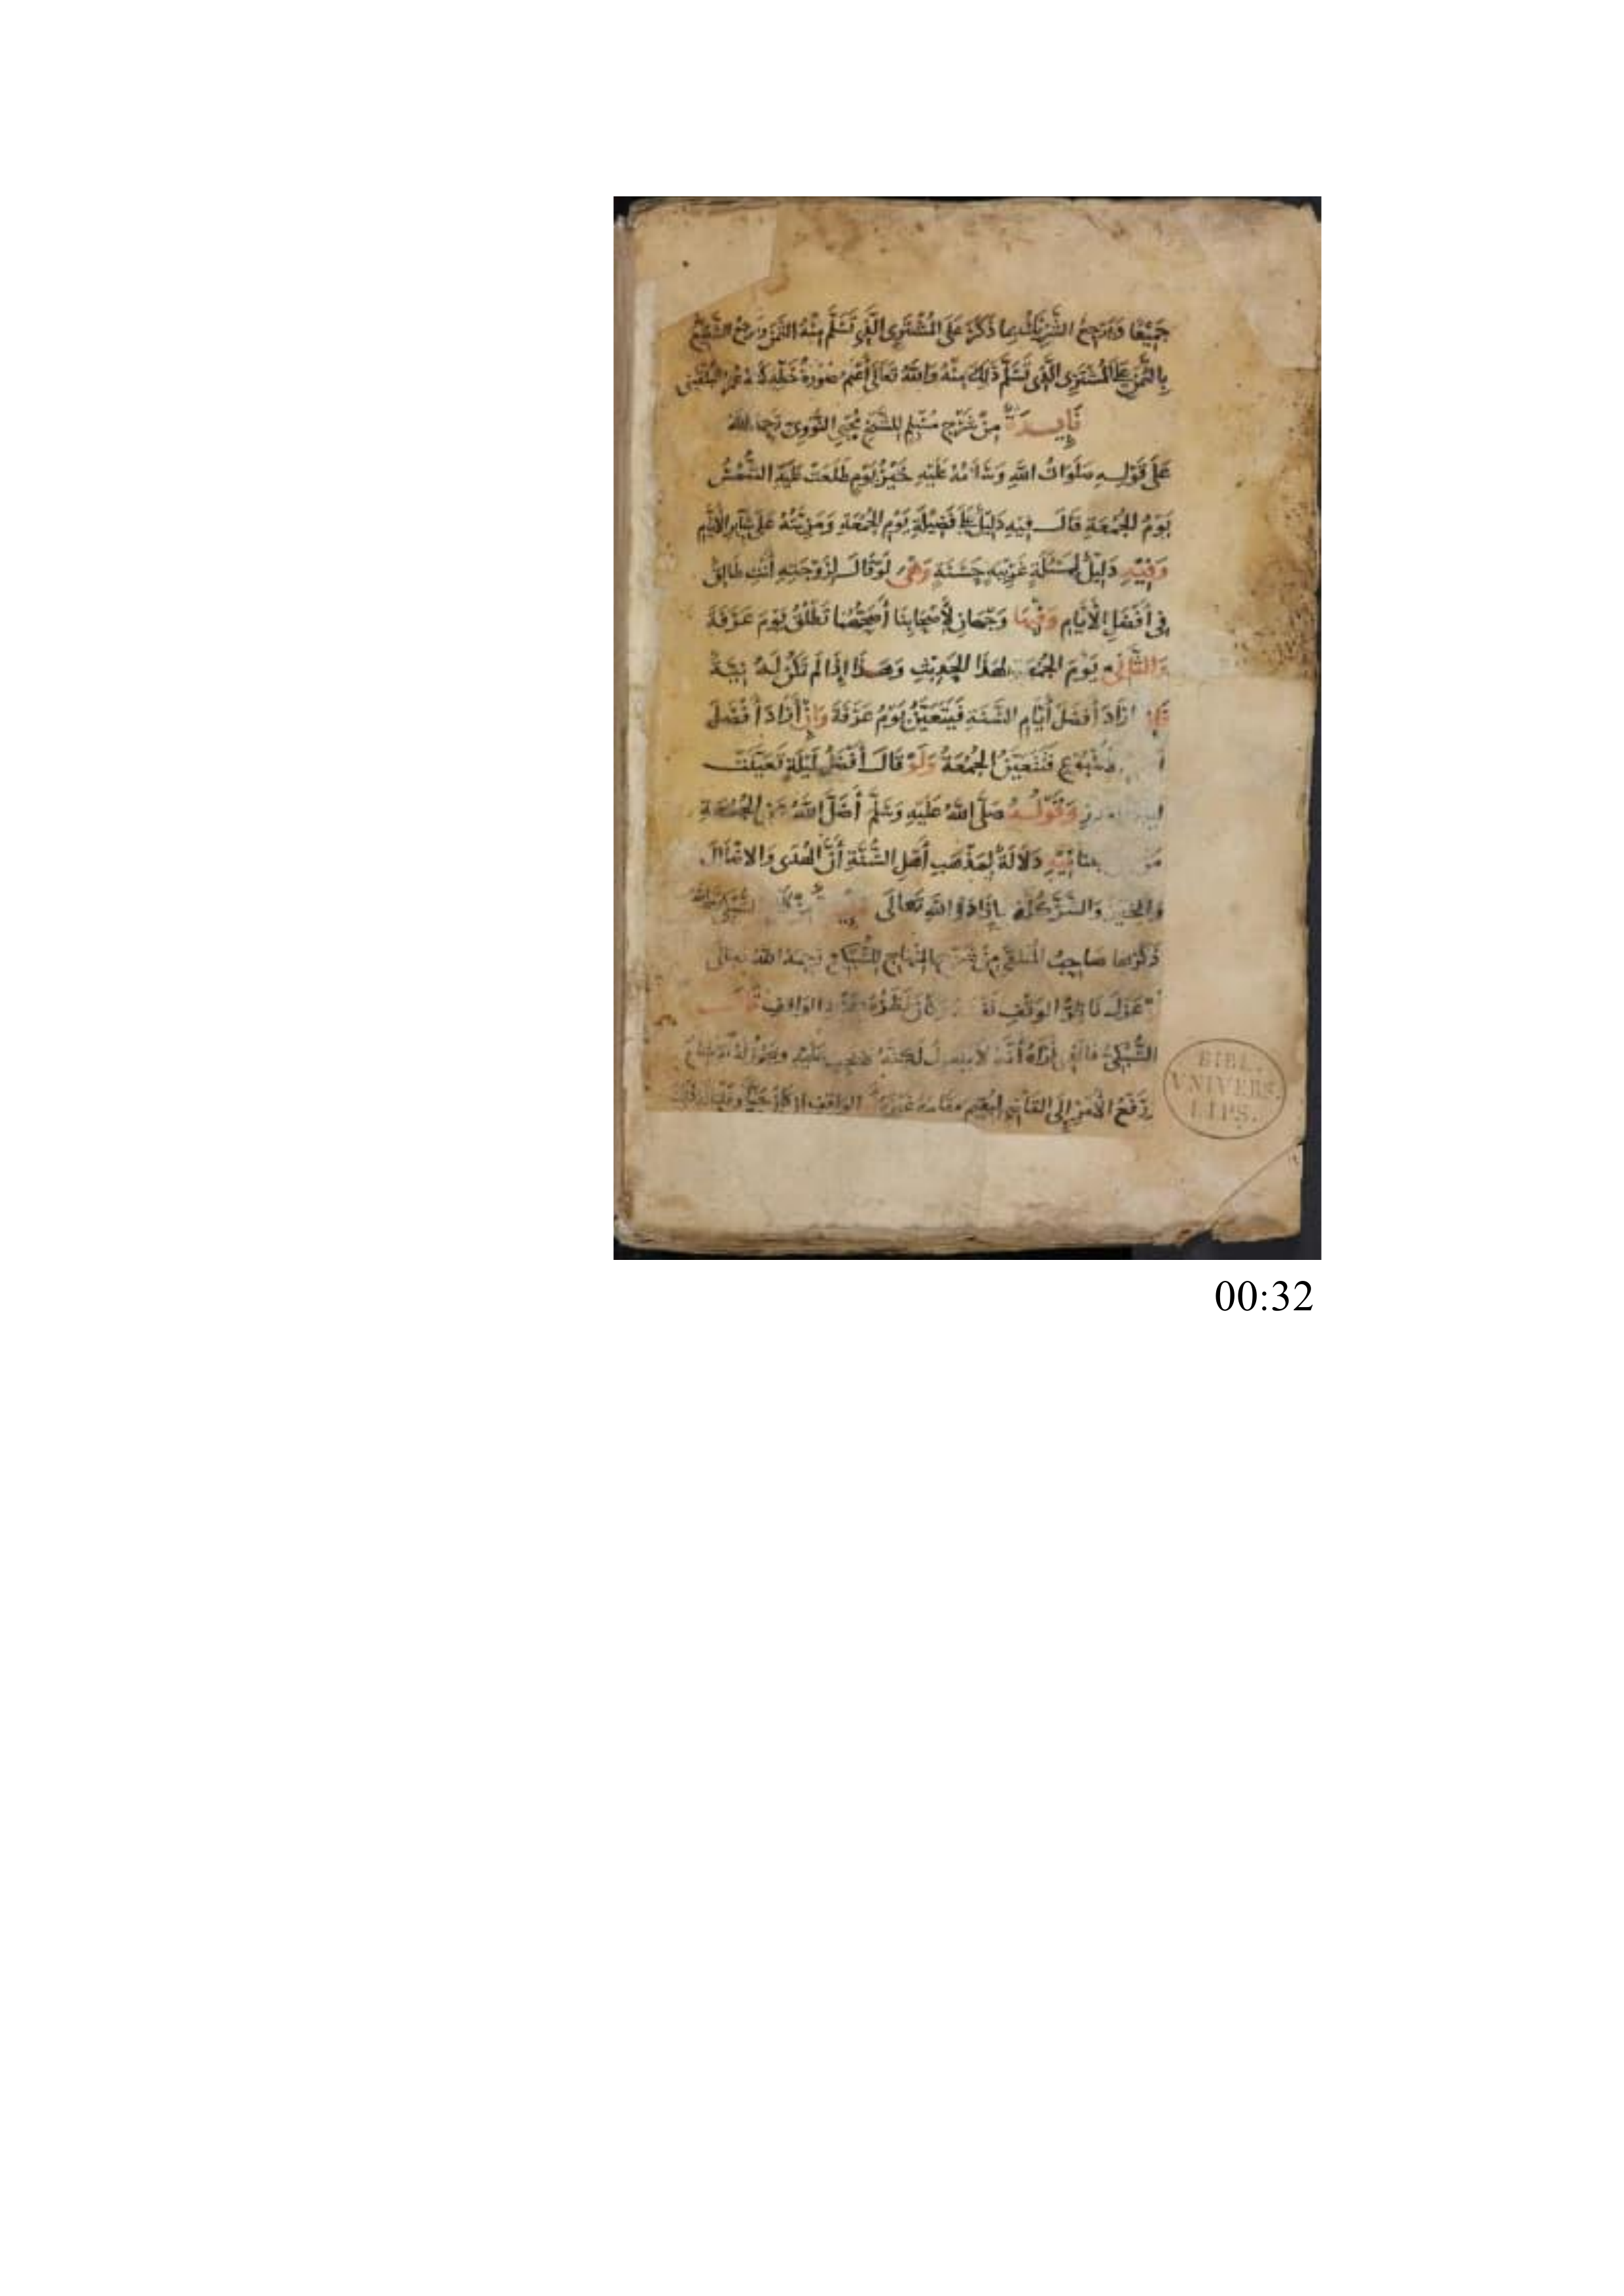 جَمِيْعًا وَيَرْجِعُ الشَّرِيْكُ بِمَا ذَكَرَ عَلَى المُشْتَرِى الَّذِى تَسَلَّمَ مِنْهُ الثَّمَنَ وَيَرْجِعُ الشَّفِيْعُ
بِالثَّمَنِ عَلَى المُشْتَرِى الَّذِى تَسَلَّمَ ذَلِكَ مِنْهُ وَاللَّهُ تَعَالَى أَعْلَمُ صُوْرَةُ خَطِّهِ البُلْقَيْنِى
فَايِدَةٌ مِنْ شَرْحِ مُسْلِمٍ لِلشَّيْخِ مُحْيِى النَّوَوِىِّ رَحِمَهُ اللَّهُ
عَلَى قَوْلِهِ صَلَوَاتُ اللَّهِ وَسَلَامُهُ عَلَيْهِ خَيْرُ يَوْمٍ طَلَعَتْ عَلَيْهِ الشَّمْسُ
يَوْمُ الجُمُعَةِ قَالَ فِيْهِ دَلِيْلٌ عَلَى فَضِيْلَةِ يَوْمِ الجُمُعَةِ وَمَزِيَّتُهُ عَلَى سَائِرِ الأَيَّامِ
وَفِيْهِ دَلِيْلٌ لِمَسْئَلَةٍ غَرِيْبَةٍ حَسَنَةٍ وَهِىَ لَوْ قَالَ لِزَوْجَتِهِ أَنْتِ طَالِقٌ
فِى أَفْضَلِ الأَيَّامِ وَفِيْهَا وَجْهَانِ لِأَصْحَابِنَا أَصَحُّهُمَا تَطْلُقُ يَوْمَ عَرَفَةَ
وَالثَّانِى يَوْمَ الجُمُعَةِ لِهَذَا الحَدِيْثِ وَهَذَا إِذَا لَمْ تَكُنْ لَهُ نِيَّةٌ
فَإِنْ ارَادَ أَفْضَلَ أَيَّامِ السَّنَةِ فَيَتَعَيَّنُ يَوْمُ عَرَفَةَ وَإِنْ أَرَادَ أَفْضَلَ
فَتَتَعَيَّنُ الجُمُعَةُ وَلَوْ قَالَ أَفْضَلُ لَيْلَةٍ تَعَيَّنَتْ
وَقَوْلُهُ صَلَّى اللَّهُ عَلَيْهِ وَسَلَّمَ أَضَلَّ اللَّهُ عَنِ الجُمُعَةِ
فِيْهِ دَلَالَةٌ لِمَذْهَبِ أَهْلِ السُّنَّةِ أَنَّ الهُدَى وَالاضْلَالَ
وَالخَيْرَ وَالشَّرَّ كُلَّهُ بِإِرَادَةِ اللَّهِ تَعَالَى
ذَكَرَهَا صَاحِبُ المِنْهَاجِ لِلسُّبْكِىِّ رَحِمَهُ اللَّهُ تَعَالَى
عَزَلَ نَاظِرُ الوَقْفِ الوَاقِفِ قَالَ
السُّبْكِىُّ فَالَّذِى أَرَاهُ أَنَّهُ لَا يَنْعَزِلُ لَكِنَّهُ
رَفْعُ الأَمْرِ إِلَى القَاضِى لِيُقِيْمَ مَقَامَهُ غَيْرَهُ الوَاقِفُ
BIBL.
VNIVERS.
LIPS.
00:32